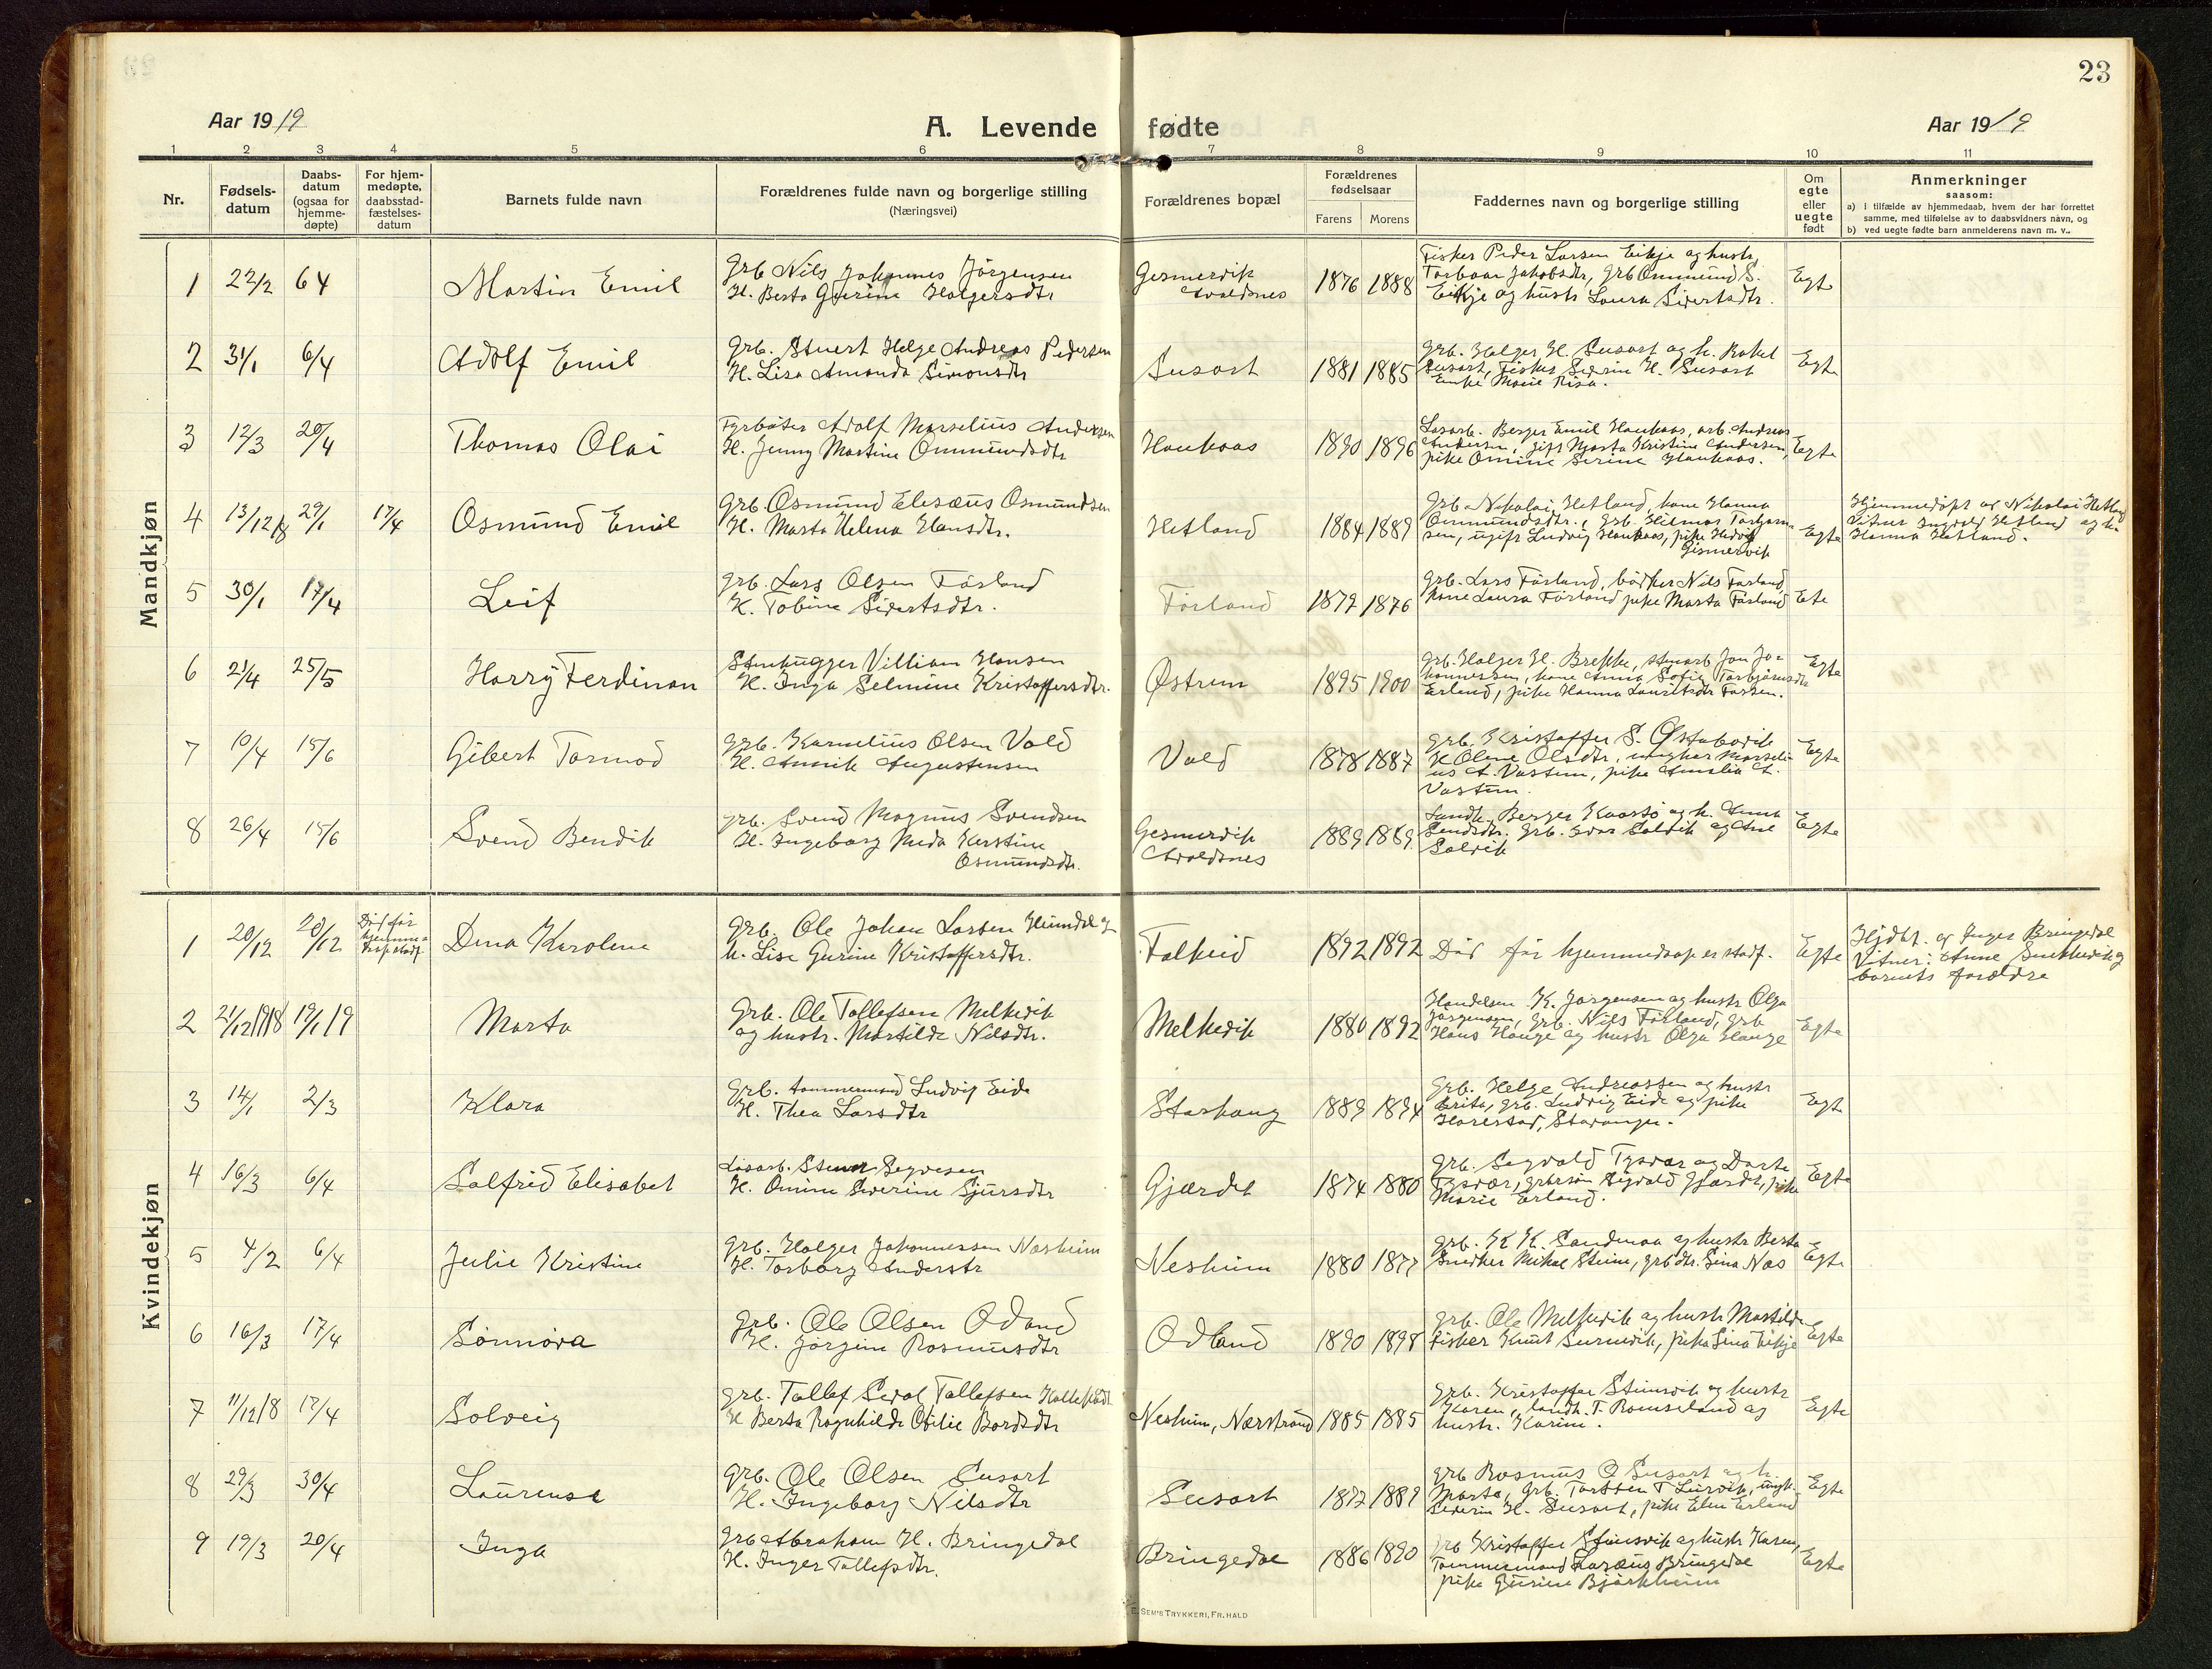 23
Aar 1919
A. Levende fødte
Aar 1919
1 2 3 4 5 6 7 8 9 10 11
Nr.
Fødsels-
datum
Daabs-
datum
(ogsaa for
hjemme-
døpte)
For hjem-
medøpte,
daabsstad-
fæstelses-
datum
Barnets fulde navn
Forældrenes fulde navn og borgerlige stilling
(Næringsvei)
Forældrenes bopæl
Forældrenes
fødselsaar
Farens Morens
Faddernes navn og borgerlige stilling
Om
egte
eller
uegte
født
Anmerkninger
saasom:
a) i tilfælde av hjemmedaab, hvem der har forrettet
samme, med tilføielse av to daabsvidners navn, og
b) ved uegte fødte barn anmelderens navn m. v..
Mandkjøn
1 22/2 6/4 Martin Emil
Grb Nils Johannes Jørgensen
H. Berta Gurine Holgersdtr
Gesmervik
Avaldsnes
1876 1888
Fisker Peder Larsen Eikje og hustr
Torbaar Jakobsdtr, Grb Ommund S.
Eikje og hustr Laura Sivertsdtr.
Egte
2 31/1 6/4 Adolf Emil
Grb. Stuert Helge Andreas Pedersen
H. Lisa Amanda Simonsdtr
Susort
1881 1885
Grb. Holger H. Susort og h. Rakel
Susort, Fisker Severin H. Susort
Enke Marie Risa.
Egte
3 12/3 20/4 Thomas Olai
Fyrbøter Adolf Marselius Andersen
H. Jenny Martine Ommundsdtr
Haukaas
1890 1896
Løsarb. Berger Emil Haukaas, arb. Andreas
Andersen, gift Marta Kristine Andersen,
pike Omine Serine Haukaas.
Egte
4 13/12 18 29/1 17/4 Osmund Emil
Grb. Osmund Elesæus Osmundsen
H. Marta Helena Hansdtr.
Hetland
1884 1889
Grb. Nikolai Hetland, kone Hanna
Ommundsdtr., Grb. Hilmar Torbjørn-
sen, ugift Ludvig Haukaas, pike Hedvig
Gismervik
Egte
Hjemmedøpt av Nikolai Hetland
Vitner Ingvald Hetland og h.
Hanna Hetland.
5 30/1 17/4 Leif
Grb. Lars Olsen Førland
H. Tobine Sivertsdtr.
Førland
1879 1876
Grb. Lars Førland, bødker Nils Førland,
kone Laura Førland pike Marta Førland
Ete
6 21/4 25/5 Harry Ferdinan
Stenhugger Villiam Hansen
H. Inga Selmine Kristoffersdtr.
Østrem
1895 1900
Grb. Holger H. Brekke, stenarb Jon Jo-
hannessen, kone Anna Sofie Torbjørnsdtr
Erland, pike Hanna Lauritsdtr Fossen.
Egte
7 10/4 15/6 Gibert Tormod
Grb. Kornelius Olsen Vold
H. Annik Augustensen
Vold
1878 1887
Grb. Kristoffer S. Østabøvik
K Olene Olsdtr, ungkar Marseli-
us A. Vastun, pike Amalia A.
Vastun.
Egte
8 26/4 15/6 Svend Bendik
Grb. Svend Magnus Svendsen
H. Ingeborg Meda Kerstine
Osmundsdtr.
Gesmervik
Avaldsnes
1889 1889
Landh. Berger Kaarstø og h. Anna
Sendsdtr. Grb. Ivar Solvik og Ane
Solvik
Egte
Kvindekjøn
1 20/12 20/12
Død før
hjemme-
daap stadf.
Dina Karoline
Grb. Ole Johan Larsen Heimdal og
h. Lise Gurine Kristoffersdtr.
Falkeid
1892 1892
Død før hjemmedaap er stadf.
Egte
Hjdbt. af Inger Bringedal
Vitner: Anne Smekkevik og
barnets forældre
2 21/12 1918 19/1 19 Marta
Grb. Ole Tollefsen Melkevik
og hustr. Martilde Nilsdtr.
Melkevik
1880 1892
Handelsm. K. Jørgensen og hustr Olga
Jørgensen, Grb. Nils Førland, Grb
Hans Hauge og hustr Olga Hauge
Egte
3 14/1 2/3 Klara
Grb. tømmermand Ludvig Eide
H. Thea Larsdtr
Starhaug
1889 1894
Grb. Helge Andreassen og hustr
Brita, grb. Ludvig Eide og pike
Harestad, Stavanger.
Egte
4 16/3 6/4 Solfrid Elisabet
Løsarb. Steiner Segvesen
H. Omine Severine Sjursdtr
Gjærdet
1874 1880
Grb. Segvald Tysvær og Dorte
Tysvær, grbrsøn Sigvald Gjærdt, pike
Marie Erland.
Egte
5 4/2 6/4 Julie Kristine
Grb. Holger Johannessen Nesheim
H. Torborg Anderstr
Nesheim
1880 1877
Grb. K K. Sandmoa og hustr Berta
Snedker Mikal Steine, grbdtr. Sina Næs
Egte
6 16/3 17/4 Sønnøva
Grb. Ole Olsen Odland
H. Jørgine Rasmusdtr
Odland
1890 1898
Grb. Ole Melkevik og hustr Martilde
Fisker Knut Surnevik, pike Sina Eikje
Egte
7 11/12 18 17/4 Solveig
Grb. Tollef Sevat Tollefsen
H Berta Ragnhilde Otilie Bordsdtr
Nesheim, Nærstrand
1885 1885
Grb. Kristoffer Stemsvik og hustr
Karen, landh. T. Romseland og
hustr. Karine.
Egte
8 29/3 30/4 Laurense
Grb. Ole Olsen Susort
H. Ingeborg Nilsdtr
Susort
1872 1889
Grb Rasmus O Susort og h.
Marta, Grb. Torsten T Leirvik, ungk.
Severin H. Susort, pike Elen Erland
Egte
9 19/3 20/4 Inga
Grb Abraham H. Bringedal
H. Inger Tollefsdtr.
Bringedal
1886 1890
Grb Kristoffer Stemsvik og hustr Karen,
Tømmermand Lazæus Bringedal
pike Gurine Bjørkheim
Egte
E. SEM'S TRYKKERI, FR.HALD